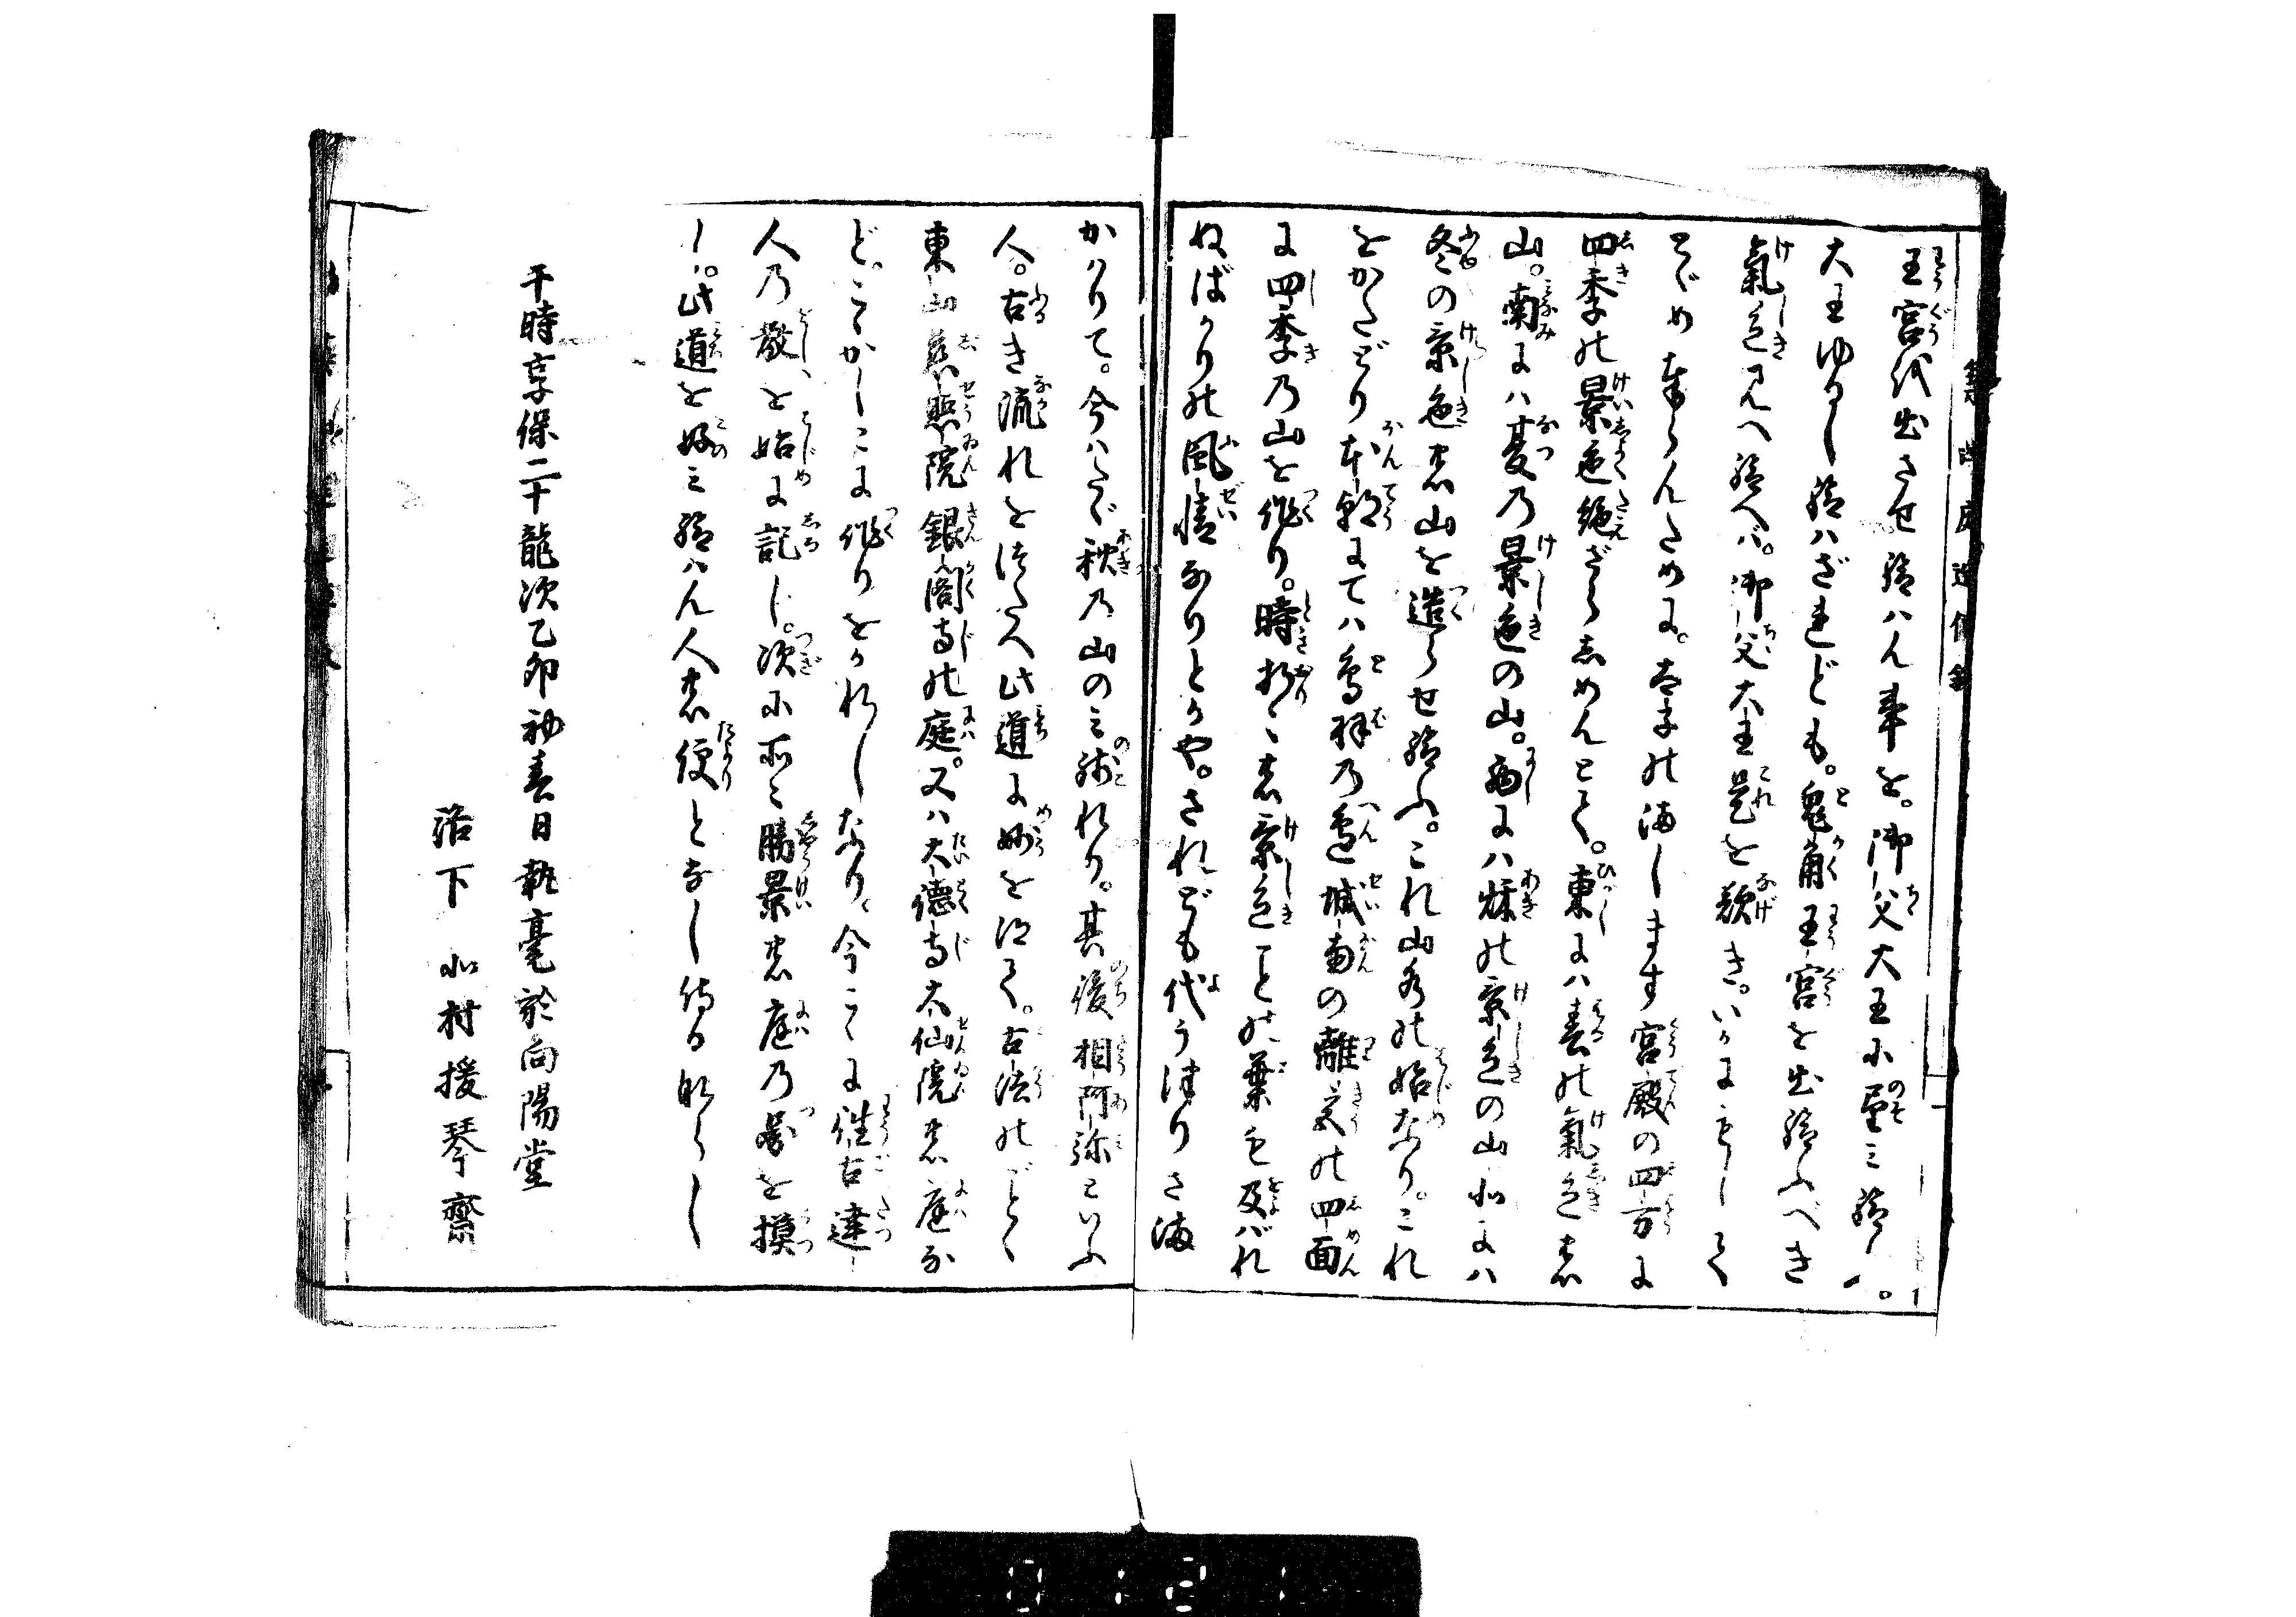 王宮を出させ給はん事を。御父大王に望み給ふ。
大王ゆるし給はざれども。兎角王宮を出給ふべき
氣色見へ給へば。御父大王是を歎き。いかにもして
とゞめ奉らんために。太子のまします宮殿の四方に
四季の景色絶ざらしめんとて。東には春の氣色の
山。南には夏の景色の山。西には秋の景色の山北には
冬の景色の山を造らせ給ふ。これ山水の始なり。これ
をかたどり本朝にては鳥羽の辺城南の離宮の四面
に四季の山を作り。時折〻の景色ことの葉も及ばれ
ぬばかりの風情なりとかや。されども代うつりさま
かはりて。今はたゞ秋の山のみ残れり。其後相阿弥といふ
人。古き流れをつたへ此道に妙を得て。古法のごとく
東山慈照院銀閣寺の庭。又は大徳寺大仙院の庭な
ど。こゝかしこに作りをかれしなり。今こゝに往古達
人の教を始に記し。次に所〻勝景の庭の圖を摸
し。此道を好み給はん人の便となし侍るならし
干時享保二十龍次乙卯初春日執毫於向陽堂
洛下 北村援琴齋